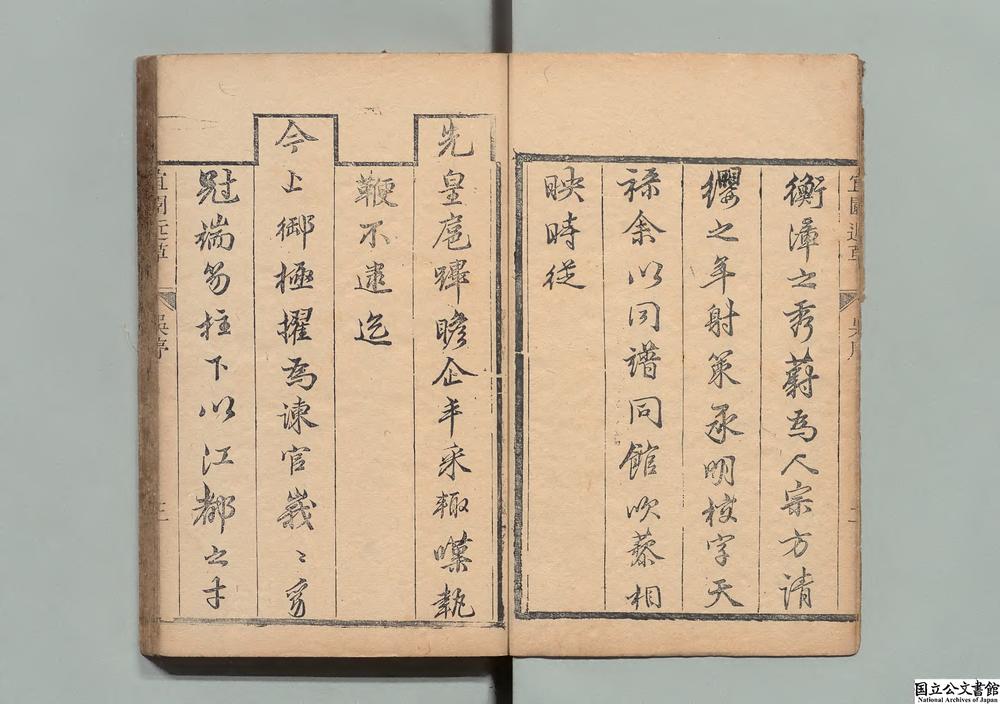 衡漳之秀蔚為人宗方請
纓之年射策承明校字天
祿余以同譜同館吹藜相
映時從
先皇扈蹕瞻企丰采輒嘆執
鞭不逮迄
今上御極擢為諫官峩〻豸
冠端笏柱下以江都之才
宜園近草
吳序
国立公文書館
National Archives of Japan